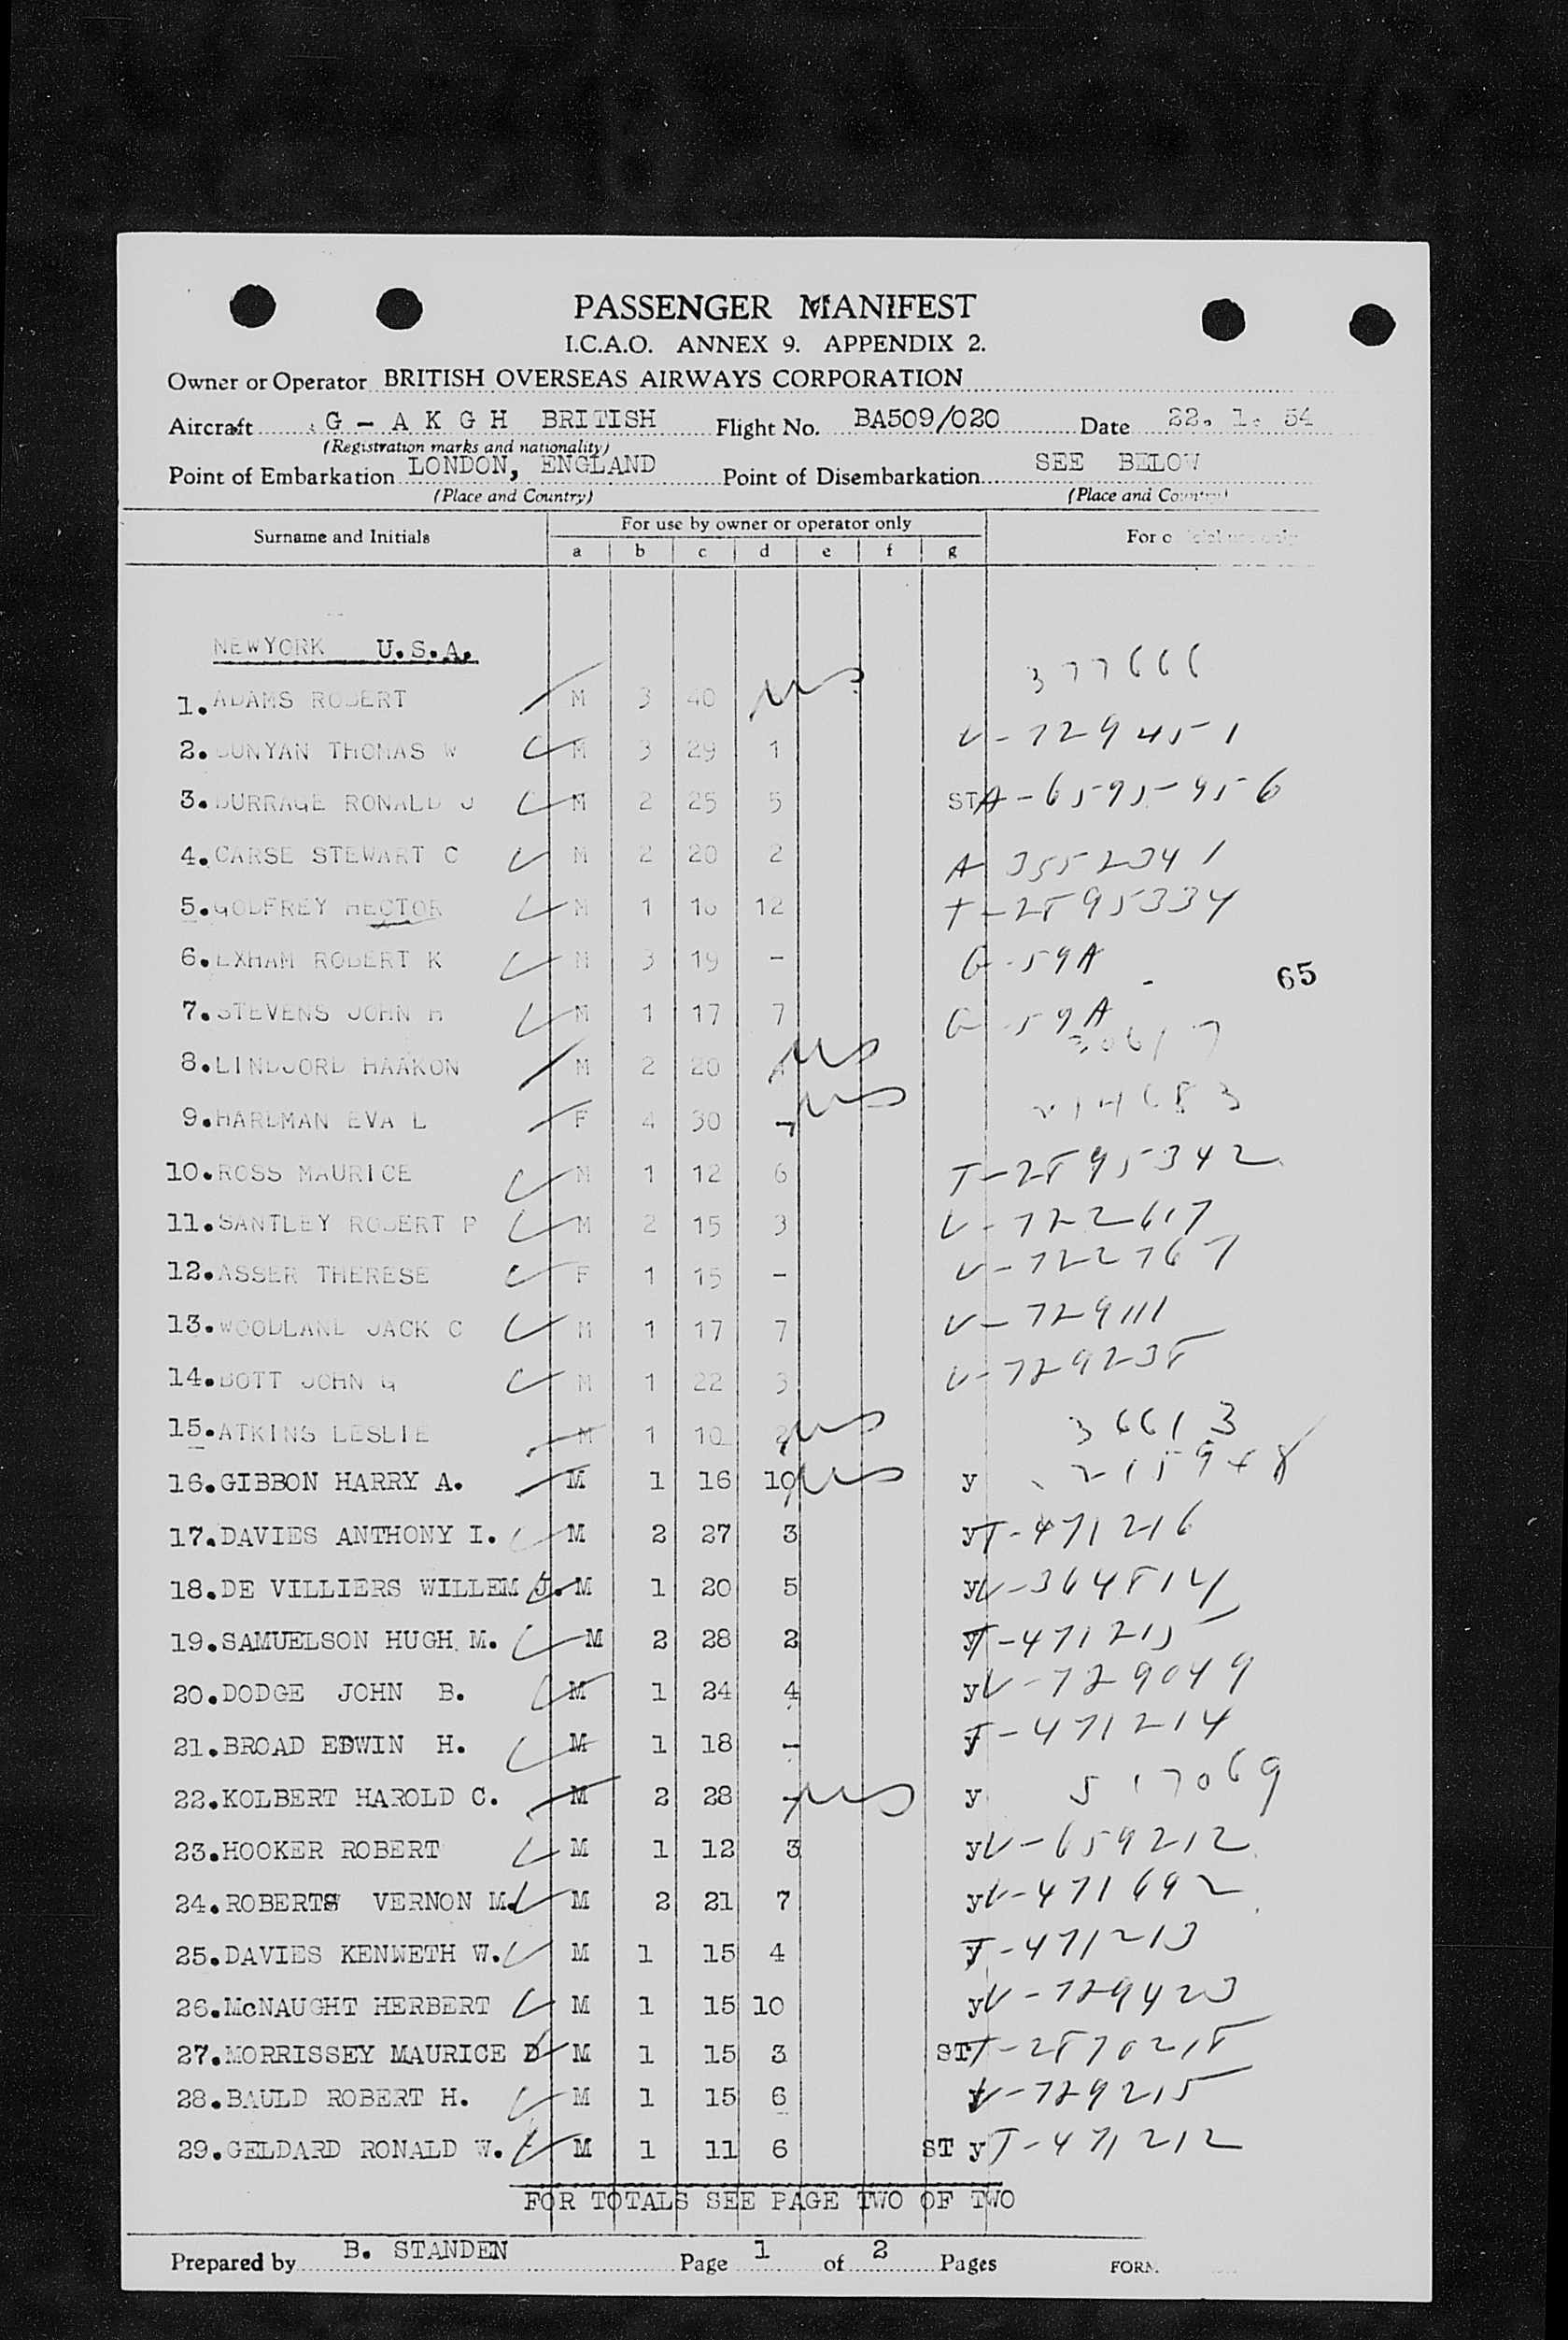 PASSENGER MANIFEST
I.C.A.O. ANNEX 9. APPENDIX 2.
Owner or Operator BRITISH OVERSEAS AIRWAYS CORPORATION
Aircraft G - A K G H BRITISH Flight No. BA509/020 Date 22. 1. 54
(Registration marks and nationality)
Point of Embarkation LONDON, ENGLAND Point of Disembarkation SEE BELOW
(Place and Country) (Place and Country)
Surname and Initials For use by owner or operator only For official use only
a b c d e f g
NEWYORK U.S.A.
1. ADAMS ROBERT M 3 40 us 377666
2. BUNYAN THOMAS W M 3 29 1 V-729451
3. BURRAGE RONALD J M 2 25 5 ST A-6595956
4. CARSE STEWART C M 2 20 2 A 3552341
5. GODFREY HECTOR M 1 12 T-2895334
6. EXHAM ROBERT K M 3 19 - G-59A
65
7. STEVENS JOHN H M 1 17 7 G-59A
8. HAAKON M 2 20 us 30617
9. HARDMAN EVA L F 4 30 - us 214683
10. ROSS MAURICE M 1 12 6 T-2895342
11. SANTLEY ROBERT P M 2 15 3 V-722617
12. ASSER THERESE F 1 15 - V-722767
13. WOODLAND JACK C M 1 17 7 V-729111
14. BOTT JOHN G M 1 22 3 V-729238
15. ATKINS LESLIE M 1 10 2 us 36613
16. GIBBON HARRY A. M 1 16 10 us y
17. DAVIES ANTHONY I. M 2 27 3 y T-471216
18. DE VILLIERS WILLEM J. M 1 20 5 y V-364814
19. SAMUELSON HUGH M. M 2 28 2 y T-471215
20. DODGE JOHN B. M 1 24 4 y V-729049
21. BROAD EDWIN H. M 1 18 - y T-471214
22. KOLBERT HAROLD C. M 2 28 - us y 517069
23. HOOKER ROBERT M 1 12 3 y V-659212
24. ROBERTS VERNON M. M 2 21 7 y V-471692
25. DAVIES KENNETH W. M 1 15 4 y T-471213
26. McNAUGHT HERBERT M 1 15 10 y V-729423
27. MORRISSEY MAURICE D M 1 15 3 ST T-2870218
28. BAULD ROBERT H. M 1 15 6 y V-729215
29. GELDARD RONALD W. M 1 11 6 ST y T-471212
FOR TOTALS SEE PAGE TWO OF TWO
Prepared by B. STANDEN Page 1 of 2 Pages FORM